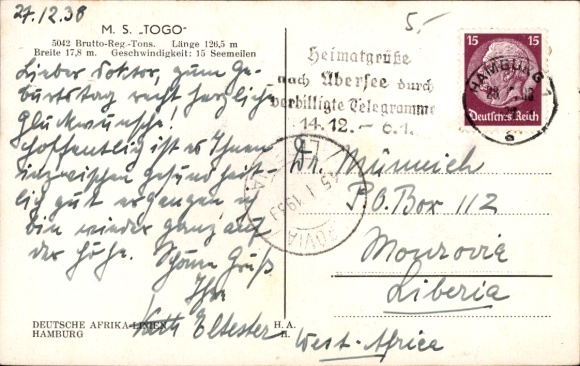 27.12.38
5,-
M. S. „TOGO"
5042 Brutto-Reg.-Tons. Länge 126,5 m
Breite 17,8 m. Geschwindigkeit: 15 Seemeilen
Lieber Doktor, zum Ge-
burtstag recht herzliche
Glückwünsche!
Hoffentlich ist es Ihnen
inzwischen gesundheit-
lich gut ergangen ich
bin wieder ganz auf
der Höhe. Schöne Grüße
Ihre
Käthe Eltester
DEUTSCHE AFRIKA-LINIEN
HAMBURG
H. A.
H.
Heimatgrüße
nach Übersee durch
verbilligte Telegramme
14.12. – 6.1.
HAMBURG 1
15 15
Deutsches Reich
MONROVIA
5 1 1939
Dr. Münnich
P.O. Box 112
Monrovia
Liberia
West-Africa